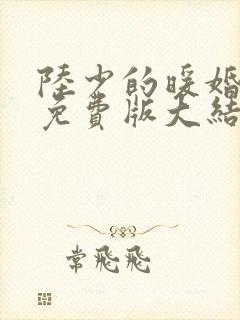 陸少的暖婚
免費版大結
常飛飛